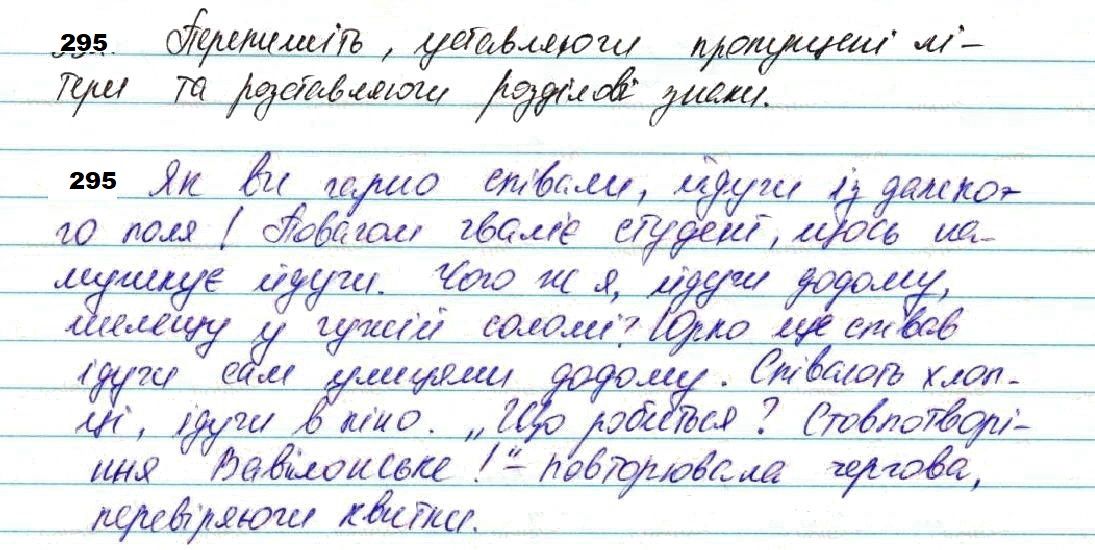 295 Перепишіть, уставляючи пропущені лі-
тери та розставляючи розділові знаки.
295 Як ви гарно співали, йдучи із далеко-
го поля! Поваром чваліє студент, щось на-
мугикує йдучи. Чого ж я, йдучи додому,
шелещу у чужій соломі? Юрко ще співав
ідучи сам улицями додому. Співають хлоп-
ці, ідучи в кіно. „Що робиться? Стовпотворі-
ння Вавілонське!“ – повторювала чергова,
перевіряючи квитки.